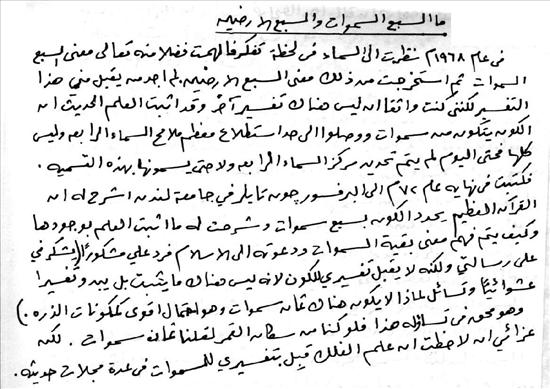 ما السبع السموات والسبع الارضين
فى عام ١٩٦٨م نظرت الى السماء فى لحظة تفكر فألهمت فضلا منه تعالى معنى السبع
السموات ثم استخرجت من ذلك معنى السبع الارضين لم اجد من يقبل مني هذا
التفسير لكننى كنت واثقا انه ليس هناك تفسير آخر وقد اثبت العلم الحديث انه
الكون يتكون من سموات ووصلوا الى حد استطلاع معظم ملامح السماء الرابعه وليس
كلها فحتى اليوم لم يتم تحديد مركز السماء الرابعه ولا حتى يسمونها بهذه التسميه .
فكتبت فى نهاية عام ٧٢م الى البرفسور چون تايلر في جامعة لندن اشرح له انه
القرآن العظيم يحدد الكون بسبع سموات وشرحت له ما اثبت العلم بوجودها
وكيف يتم فهم معنى بقية السموات ودعوته الى الاسلام فرد علي مشكوراً (يشكرني
على رسالتي ولكنه لا يقبل تفسيري للكون لانه ليس هناك ما يثبت بل يبدو تفسيرا
عشوائياً وتسائل لماذا لا يكون هناك ثمان سموات وهو احتمال اقوى كمكونات الذره .)
وهو محق فى تساؤله هذا فلو كنا من سكان القمر لقلنا ثمانه سموات . لكنه
عزائي ان لاحظت انه علم الفلك قبل بتفسيري للسموات فى عدة مجلات حديثه .